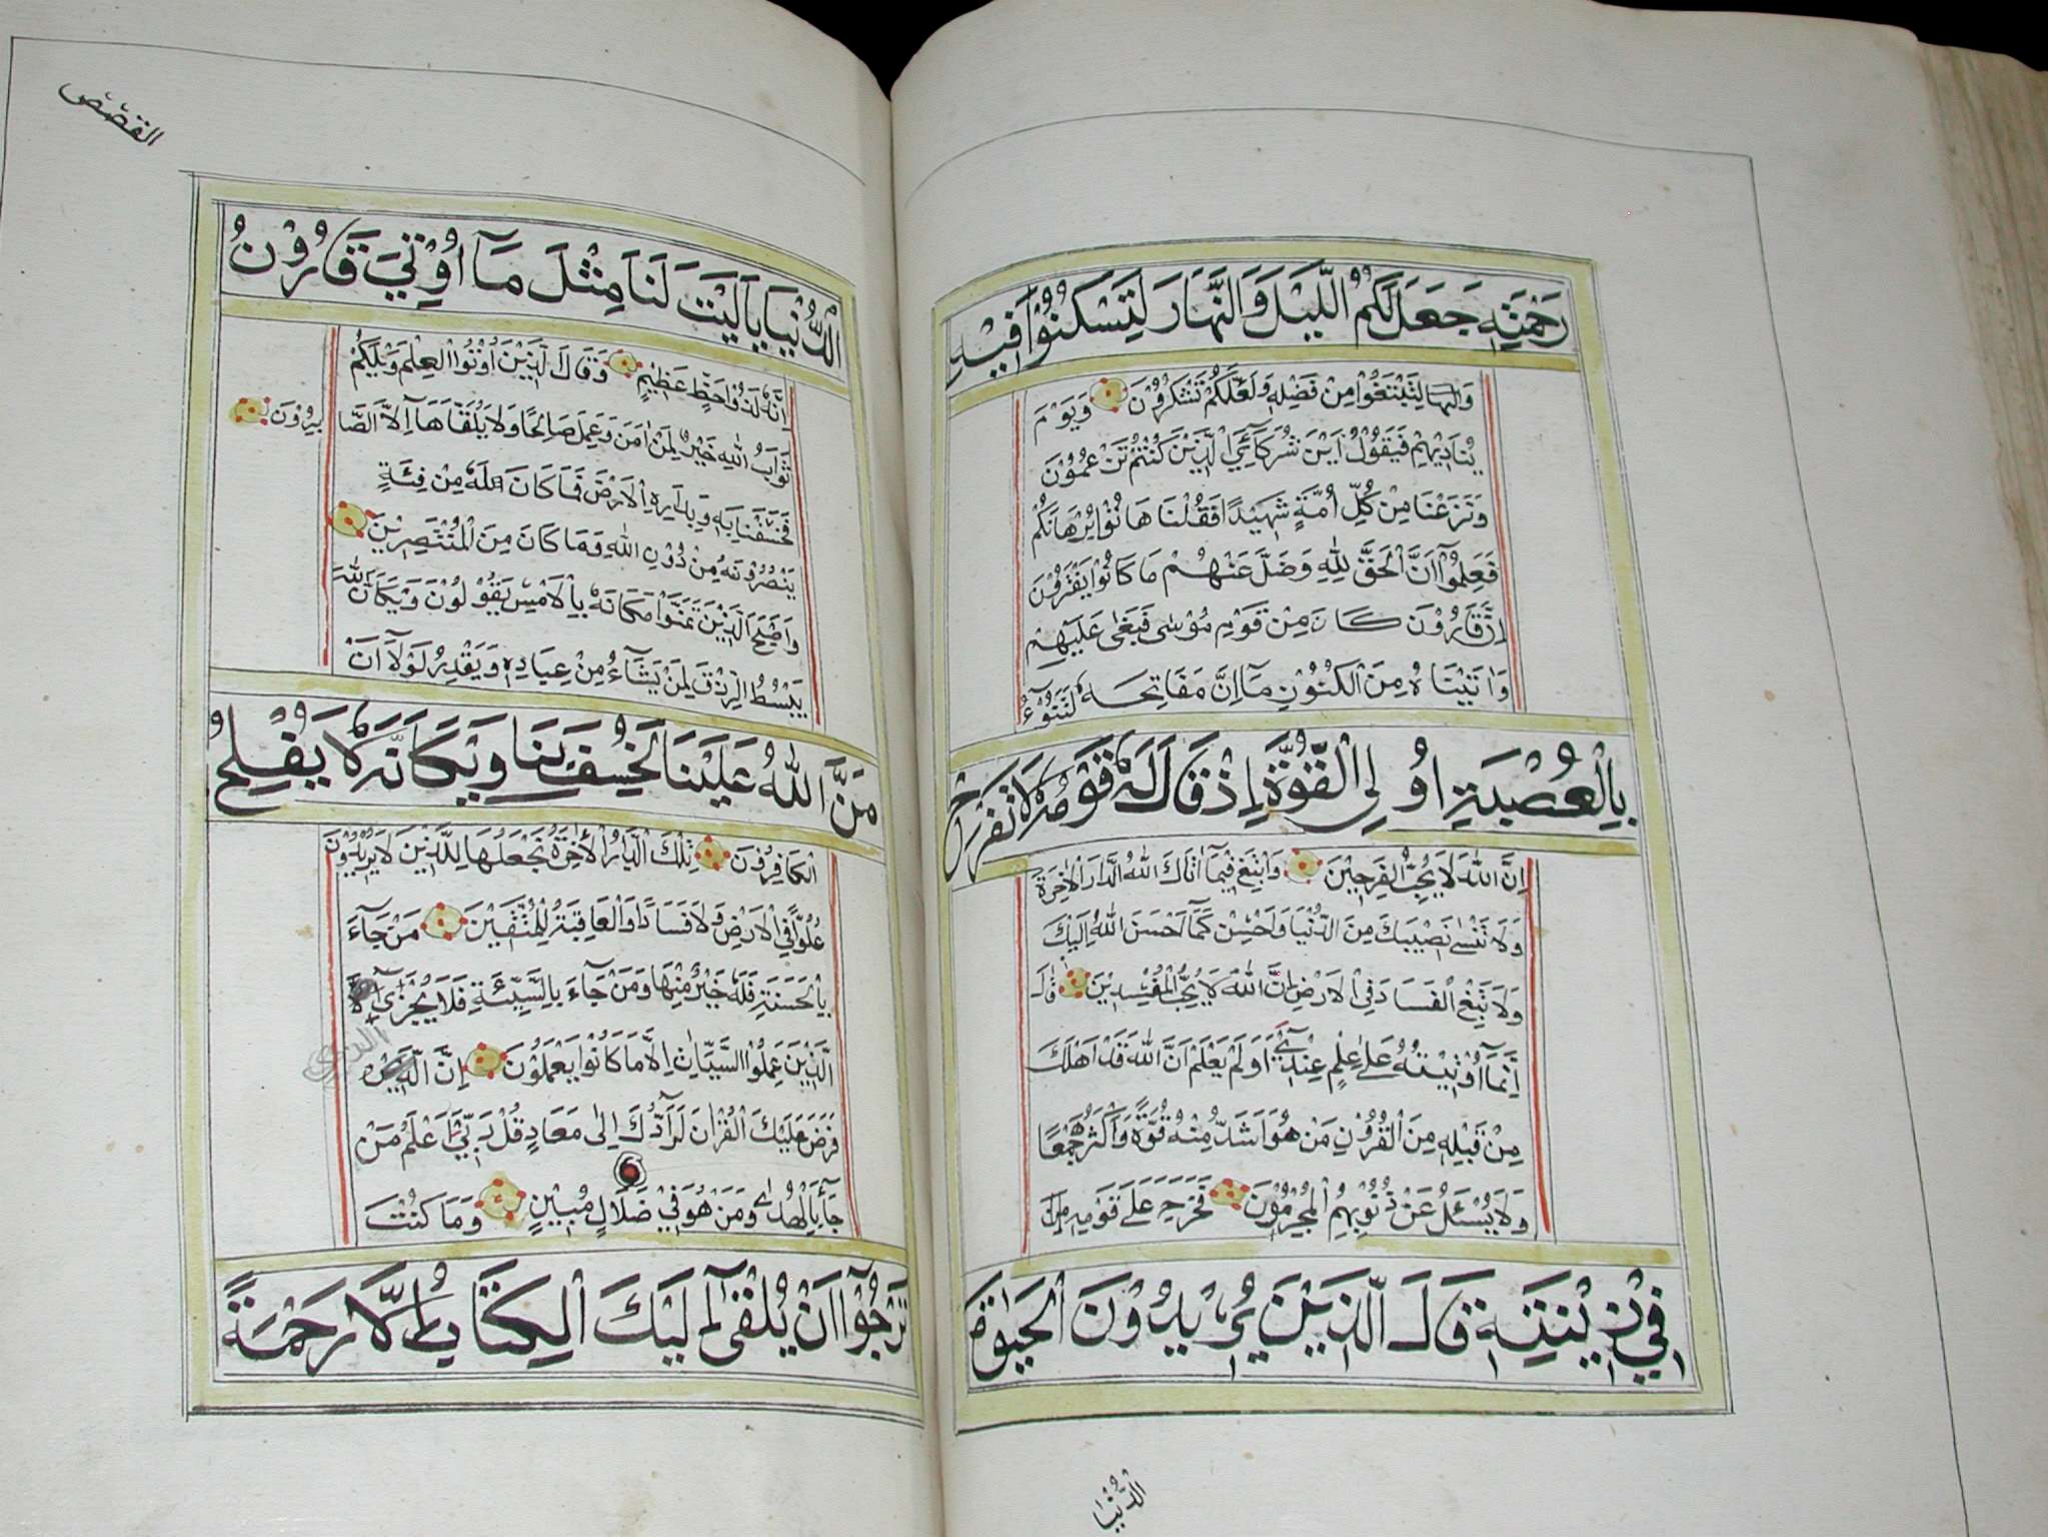 رَحْمَتِهِ جَعَلَ لَكُمُ اللَّيْلَ وَالنَّهَارَ لِتَسْكُنُوْا فِيْهِ
وَالنَّهَا لِتَبْتَغُوْا مِنْ فَضْلِهِ وَلَعَلَّكُمْ تَشْكُرُوْنَ وَيَوْمَ
يُنَادِيْهِمْ فَيَقُوْلُ اَيْنَ شُرَكَآئِيَ الَّذِيْنَ كُنْتُمْ تَزْعُمُوْنَ
وَنَزَعْنَا مِنْ كُلِّ اُمَّةٍ شَهِيْدًا فَقُلْنَا هَاتُوْا بُرْهَانَكُمْ
فَعَلِمُوْآ اَنَّ الْحَقَّ لِلّٰهِ وَضَلَّ عَنْهُمْ مَا كَانُوْا يَفْتَرُوْنَ
اِنَّ قَارُوْنَ كَانَ مِنْ قَوْمِ مُوْسٰى فَبَغٰى عَلَيْهِمْ
وَاٰتَيْنَاهُ مِنَ الْكُنُوْزِ مَآ اِنَّ مَفَاتِحَهُ لَتَنُوْٓءُ
بِالْعُصْبَةِ اُولِى الْقُوَّةِ اِذْ قَالَ لَهُ قَوْمُهُ لَا تَفْرَحْ
اِنَّ اللّٰهَ لَا يُحِبُّ الْفَرِحِيْنَ وَابْتَغِ فِيْمَآ اٰتَاكَ اللّٰهُ الدَّارَ الْاٰخِرَةَ
وَلَا تَنْسَ نَصِيْبَكَ مِنَ الدُّنْيَا وَاَحْسِنْ كَمَآ اَحْسَنَ اللّٰهُ اِلَيْكَ
وَلَا تَبْغِ الْفَسَادَ فِى الْاَرْضِ اِنَّ اللّٰهَ لَا يُحِبُّ الْمُفْسِدِيْنَ قَالَ
اِنَّمَآ اُوْتِيْتُهُ عَلٰى عِلْمٍ عِنْدِيْ اَوَلَمْ يَعْلَمْ اَنَّ اللّٰهَ قَدْ اَهْلَكَ
مِنْ قَبْلِهِ مِنَ الْقُرُوْنِ مَنْ هُوَ اَشَدُّ مِنْهُ قُوَّةً وَاَكْثَرُ جَمْعًا
وَلَا يُسْئَلُ عَنْ ذُنُوْبِهِمُ الْمُجْرِمُوْنَ فَخَرَجَ عَلٰى قَوْمِهِ
فِيْ زِيْنَتِهِ قَالَ الَّذِيْنَ يُرِيْدُوْنَ الْحَيٰوةَ
الدُّنْيَا
القصص
الدُّنْيَا يَآ لَيْتَ لَنَا مِثْلَ مَآ اُوْتِيَ قَارُوْنُ
اِنَّهُ لَذُوْ حَظٍّ عَظِيْمٍ وَقَالَ الَّذِيْنَ اُوْتُوا الْعِلْمَ وَيْلَكُمْ
ثَوَابُ اللّٰهِ خَيْرٌ لِمَنْ اٰمَنَ وَعَمِلَ صَالِحًا وَلَا يُلَقَّاهَآ اِلَّا الصَّا بِرُوْنَ
فَخَسَفْنَا بِهِ وَبِدَارِهِ الْاَرْضَ فَمَا كَانَ لَهُ مِنْ فِئَةٍ
يَنْصُرُوْنَهُ مِنْ دُوْنِ اللّٰهِ وَمَا كَانَ مِنَ الْمُنْتَصِرِيْنَ
وَاَصْبَحَ الَّذِيْنَ تَمَنَّوْا مَكَانَهُ بِالْاَمْسِ يَقُوْلُوْنَ وَيْكَاَنَّ اللّٰهَ
يَبْسُطُ الرِّزْقَ لِمَنْ يَشَآءُ مِنْ عِبَادِهِ وَيَقْدِرُ لَوْلَآ اَنْ
مَنَّ اللّٰهُ عَلَيْنَا لَخَسَفَ بِنَا وَيْكَاَنَّهُ لَا يُفْلِحُ
الْكَافِرُوْنَ تِلْكَ الدَّارُ الْاٰخِرَةُ نَجْعَلُهَا لِلَّذِيْنَ لَا يُرِيْدُوْنَ
عُلُوًّا فِى الْاَرْضِ وَلَا فَسَادًا وَالْعَاقِبَةُ لِلْمُتَّقِيْنَ مَنْ جَآءَ
بِالْحَسَنَةِ فَلَهُ خَيْرٌ مِنْهَا وَمَنْ جَآءَ بِالسَّيِّئَةِ فَلَا يُجْزَى
الَّذِيْنَ عَمِلُوا السَّيِّاٰتِ اِلَّا مَا كَانُوْا يَعْمَلُوْنَ اِنَّ
فَرَضَ عَلَيْكَ الْقُرْاٰنَ لَرَآدُّكَ اِلٰى مَعَادٍ قُلْ رَبِّيْٓ اَعْلَمُ مَنْ
جَآءَ بِالْهُدٰى وَمَنْ هُوَ فِيْ ضَلَالٍ مُبِيْنٍ وَمَا كُنْتَ
تَرْجُوْآ اَنْ يُلْقٰٓى اِلَيْكَ الْكِتَابُ اِلَّا رَحْمَةً